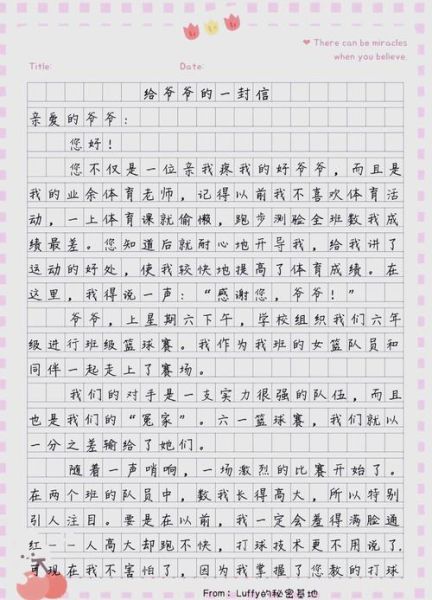 ❤ There can be miracles
when you believe
Title:
Date:
给爷爷的一封信
亲爱的爷爷：
您好！
您不仅是一位亲我疼我的好爷爷，而且是
我的业余体育老师，记得以前我不喜欢体育活
动，一上体育课就偷懒，跑步测验全班数我成
绩最差。您知道后就耐心地开导我，给我讲了
运动的好处，使我较快地提高了体育成绩。在
这里，我得说一声：“感谢您，爷爷！”
爷爷，上星期六下午，学校组织我们六年
级进行班级篮球赛。我作为我班的女篮队员和
同伴一起走上了赛场。
我们的对手是一支实力很强的队伍，而且
也是我们的“冤家”。六一篮球赛，我们就以
一分之差输给了她们。
随着一声哨响，一场激烈的比赛开始了。
在两个班的队员中，数我长得高大，所以特别
引人注目。要是在以前，我一定会羞得满脸通
红——人高大却跑不快，打球技术更不用说了，
可现在我不害怕了，因为我掌握了您教的打球
From：Luffy的秘密基地